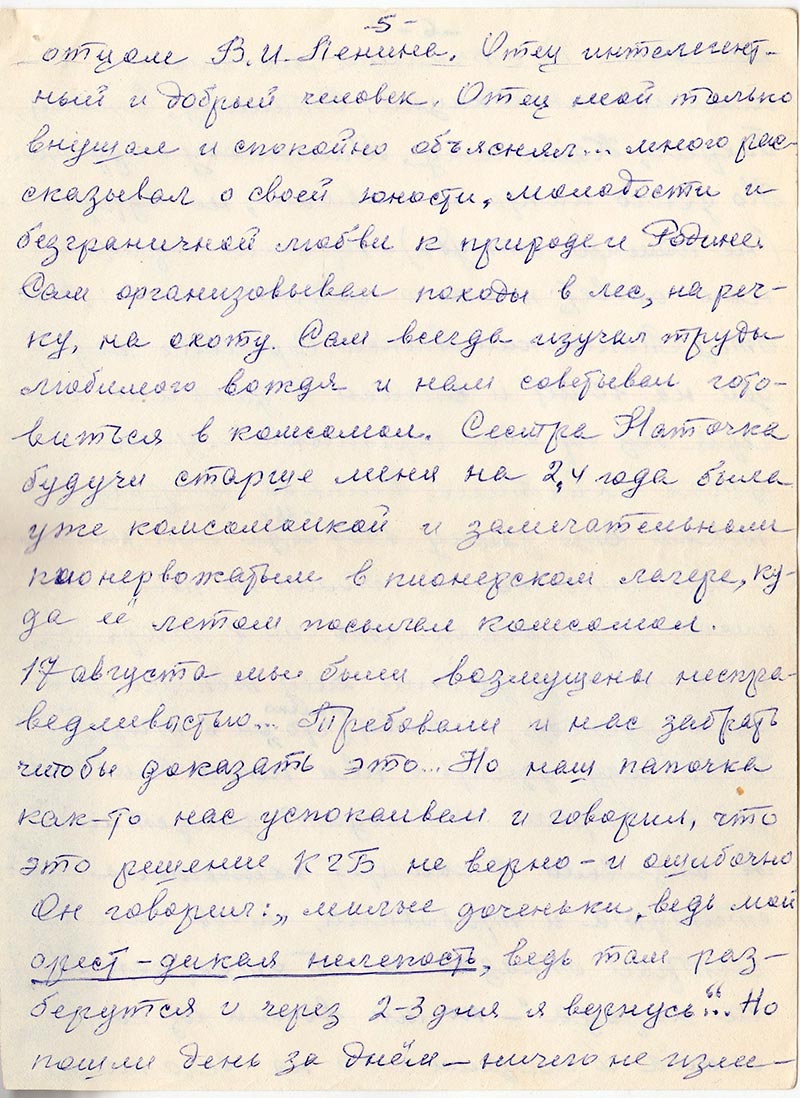 -5-
отцом В.И. Ленина. Отец интелегент-
ный и добрый человек. Отец мой только
внушал и спокойно объяснял... много рас-
сказывал о своей юности, молодости и
безграничной любви к природе и Родине.
Сам организовывал походы в лес, на реч-
ку, на охоту. Сам всегда изучал труды
любимого вождя и нам советывал гото-
виться в комсомол. Сестра Наточка
будучи старше меня на 2,4 года была
уже комсомолкой и замечательным
пионервожатым в пионерском лагере, ку-
да её летом посылал комсомол.
17 августа мы были возмущены неспра-
ведливостью... Требовали и нас забрать
чтобы доказать это... Но наш папочка
как-то нас успокаивал и говорил, что
это решение КГБ не верно - и ошибочно
Он говорил: „милые доченьки, ведь мой
арест - дикая нелепость, ведь там раз-
берутся и через 2-3 дня я вернусь“... Но
пошли день за днём - ничего не изме-